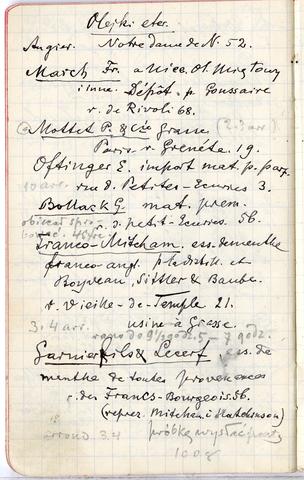 Olejki etc.
Augier. Notre dame de N. 52.
March Fr. a Nice. Ol. Miętowy
i inne. Dépôt. p. Goussaire
r. de Rivoli 68.
Mottet P. & Cie Grasse (2-3 arr.)
Paris r. Grenéta. 19.
Oftinger E. import mat. p. parf.
10 arr. rue d. Petites-Ecuries 3.
Bollack G. mat. prem.
r. d. petit-Ecuries. 56.
Franco-Mitcham. ess. de menthe
franco-angl. p. la distill. et
Boyveau, Sittler & Baube.
r. Vieille-de-Temple 21.
3. 4 arr. usine à Grasse.
rano do 9½ godz. 5-7 godz.
Garnier fils & Lecerf, ess. de
menthe de toutes provenances
r. des Francs-Bourgeois. 56.
(reprez. Mitcham i Hatchinson)
arrond. 3.4 próbkę wysłać poczt.
100 g